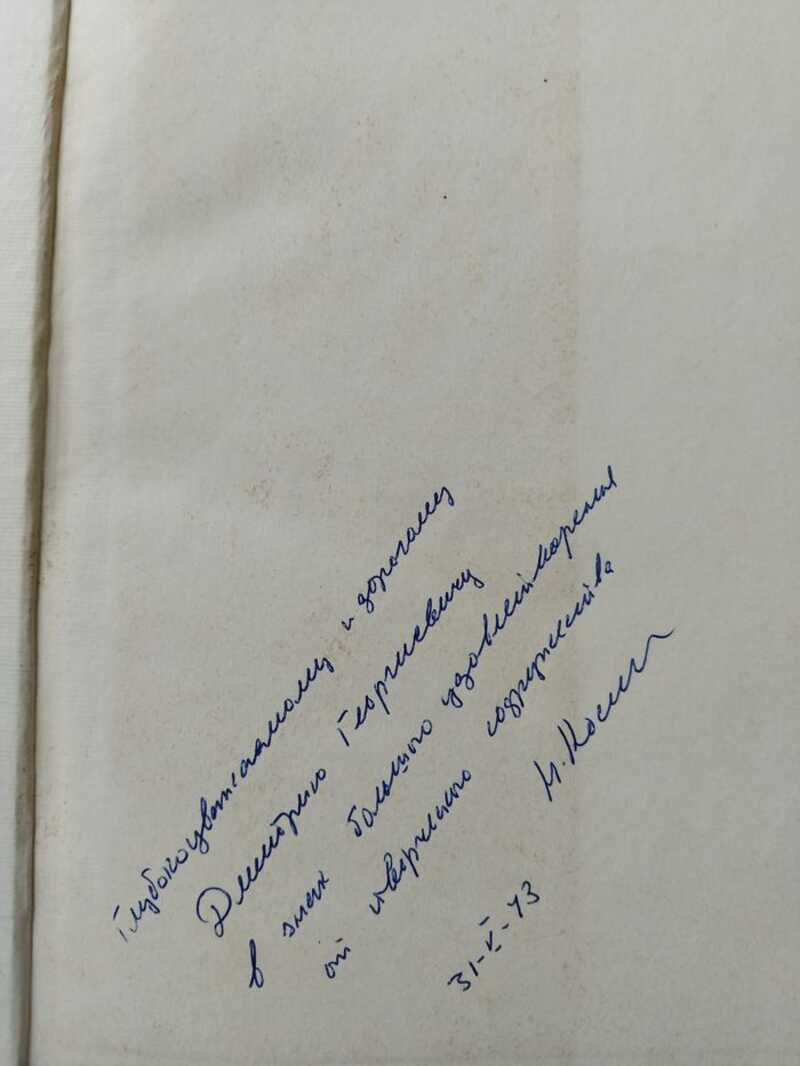 Глубокоуважаемому и дорогому
Дмитрию Георгиевичу
в знак большого удовлетворения
от творческого содружества
31-V-73